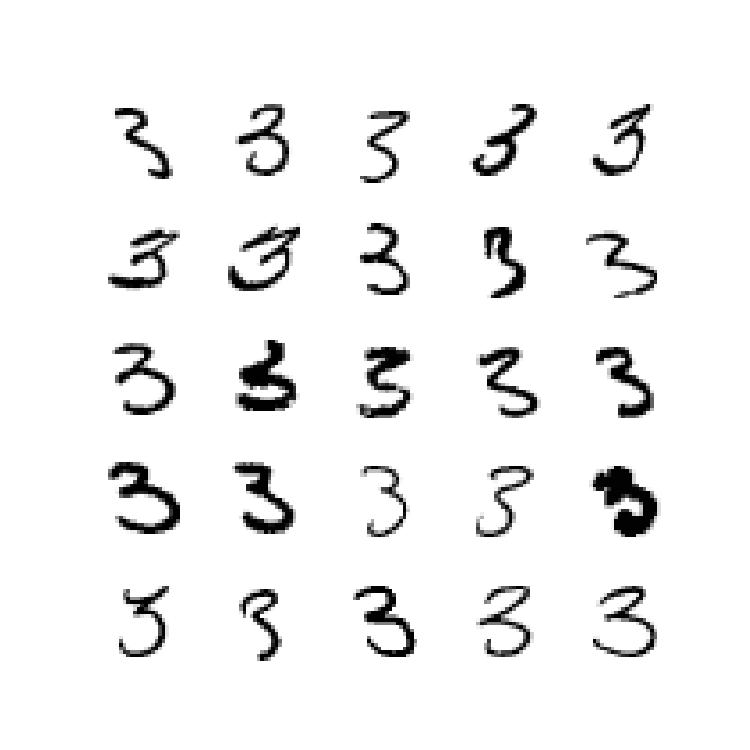 3 3 3 3 3
3 3 3 3 3
3 3 3 3 3
3 3 3 3 3
3 3 3 3 3